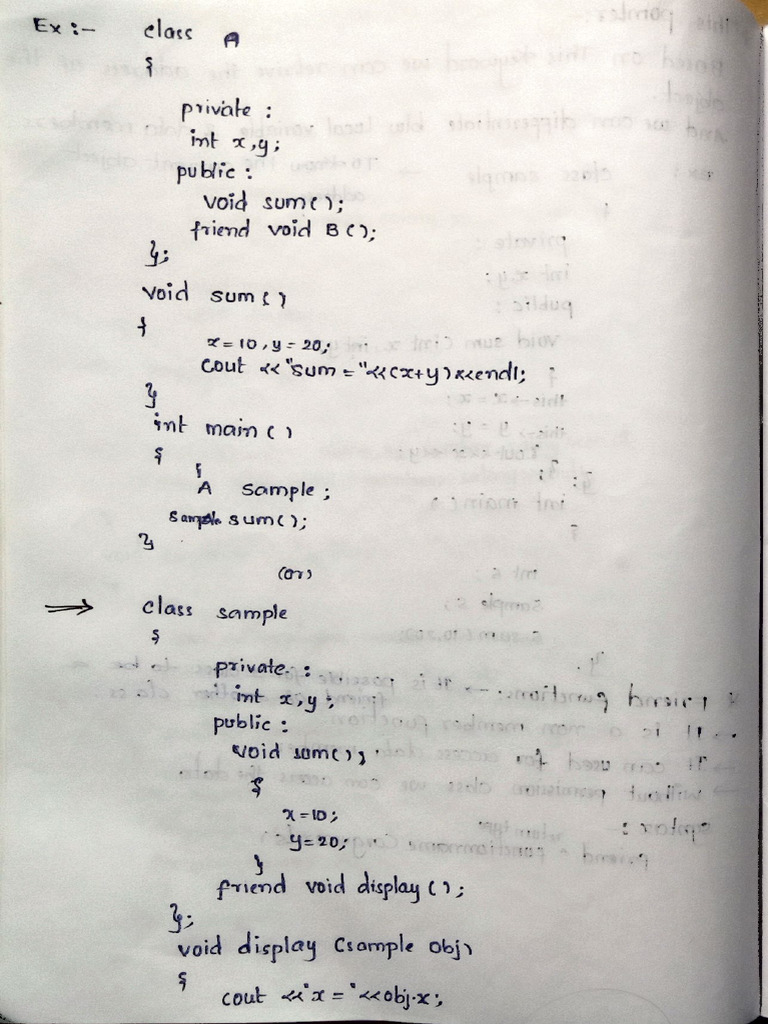 Ex :- class A
{
private :
int x,y;
public :
void sum();
friend void B();
};
void sum()
{
x=10, y=20;
cout <<"sum = "<<(x+y)<<endl;
}
int main()
{
A sample;
sample.sum();
}
(or)
→ class sample
{
private :
int x,y;
public :
void sum()
{
x=10;
y=20;
}
friend void display();
};
void display (sample obj)
{
cout <<"x = "<<obj.x;